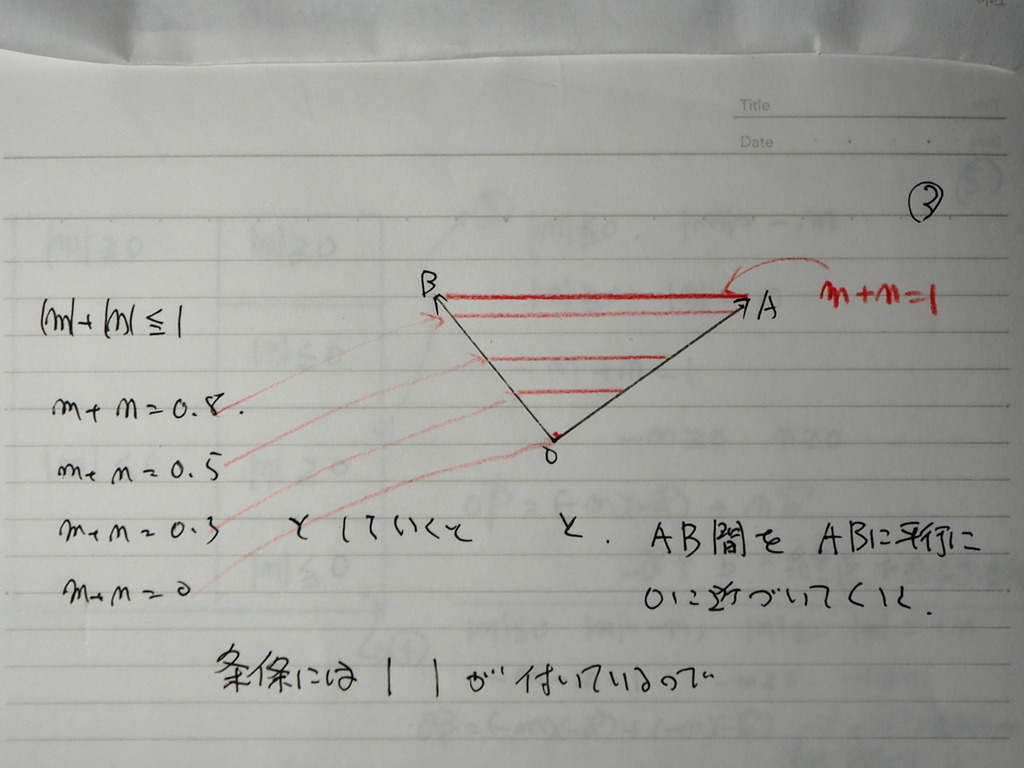 Title
Date
③
B
A
m+n=1
|m|+|n|≦1
m+n=0.8.
m+n=0.5
O
m+n=0.3 としていくと と. AB間を ABに平行に
m+n=0 Oに近づいていく.
条件には | | が付いているので